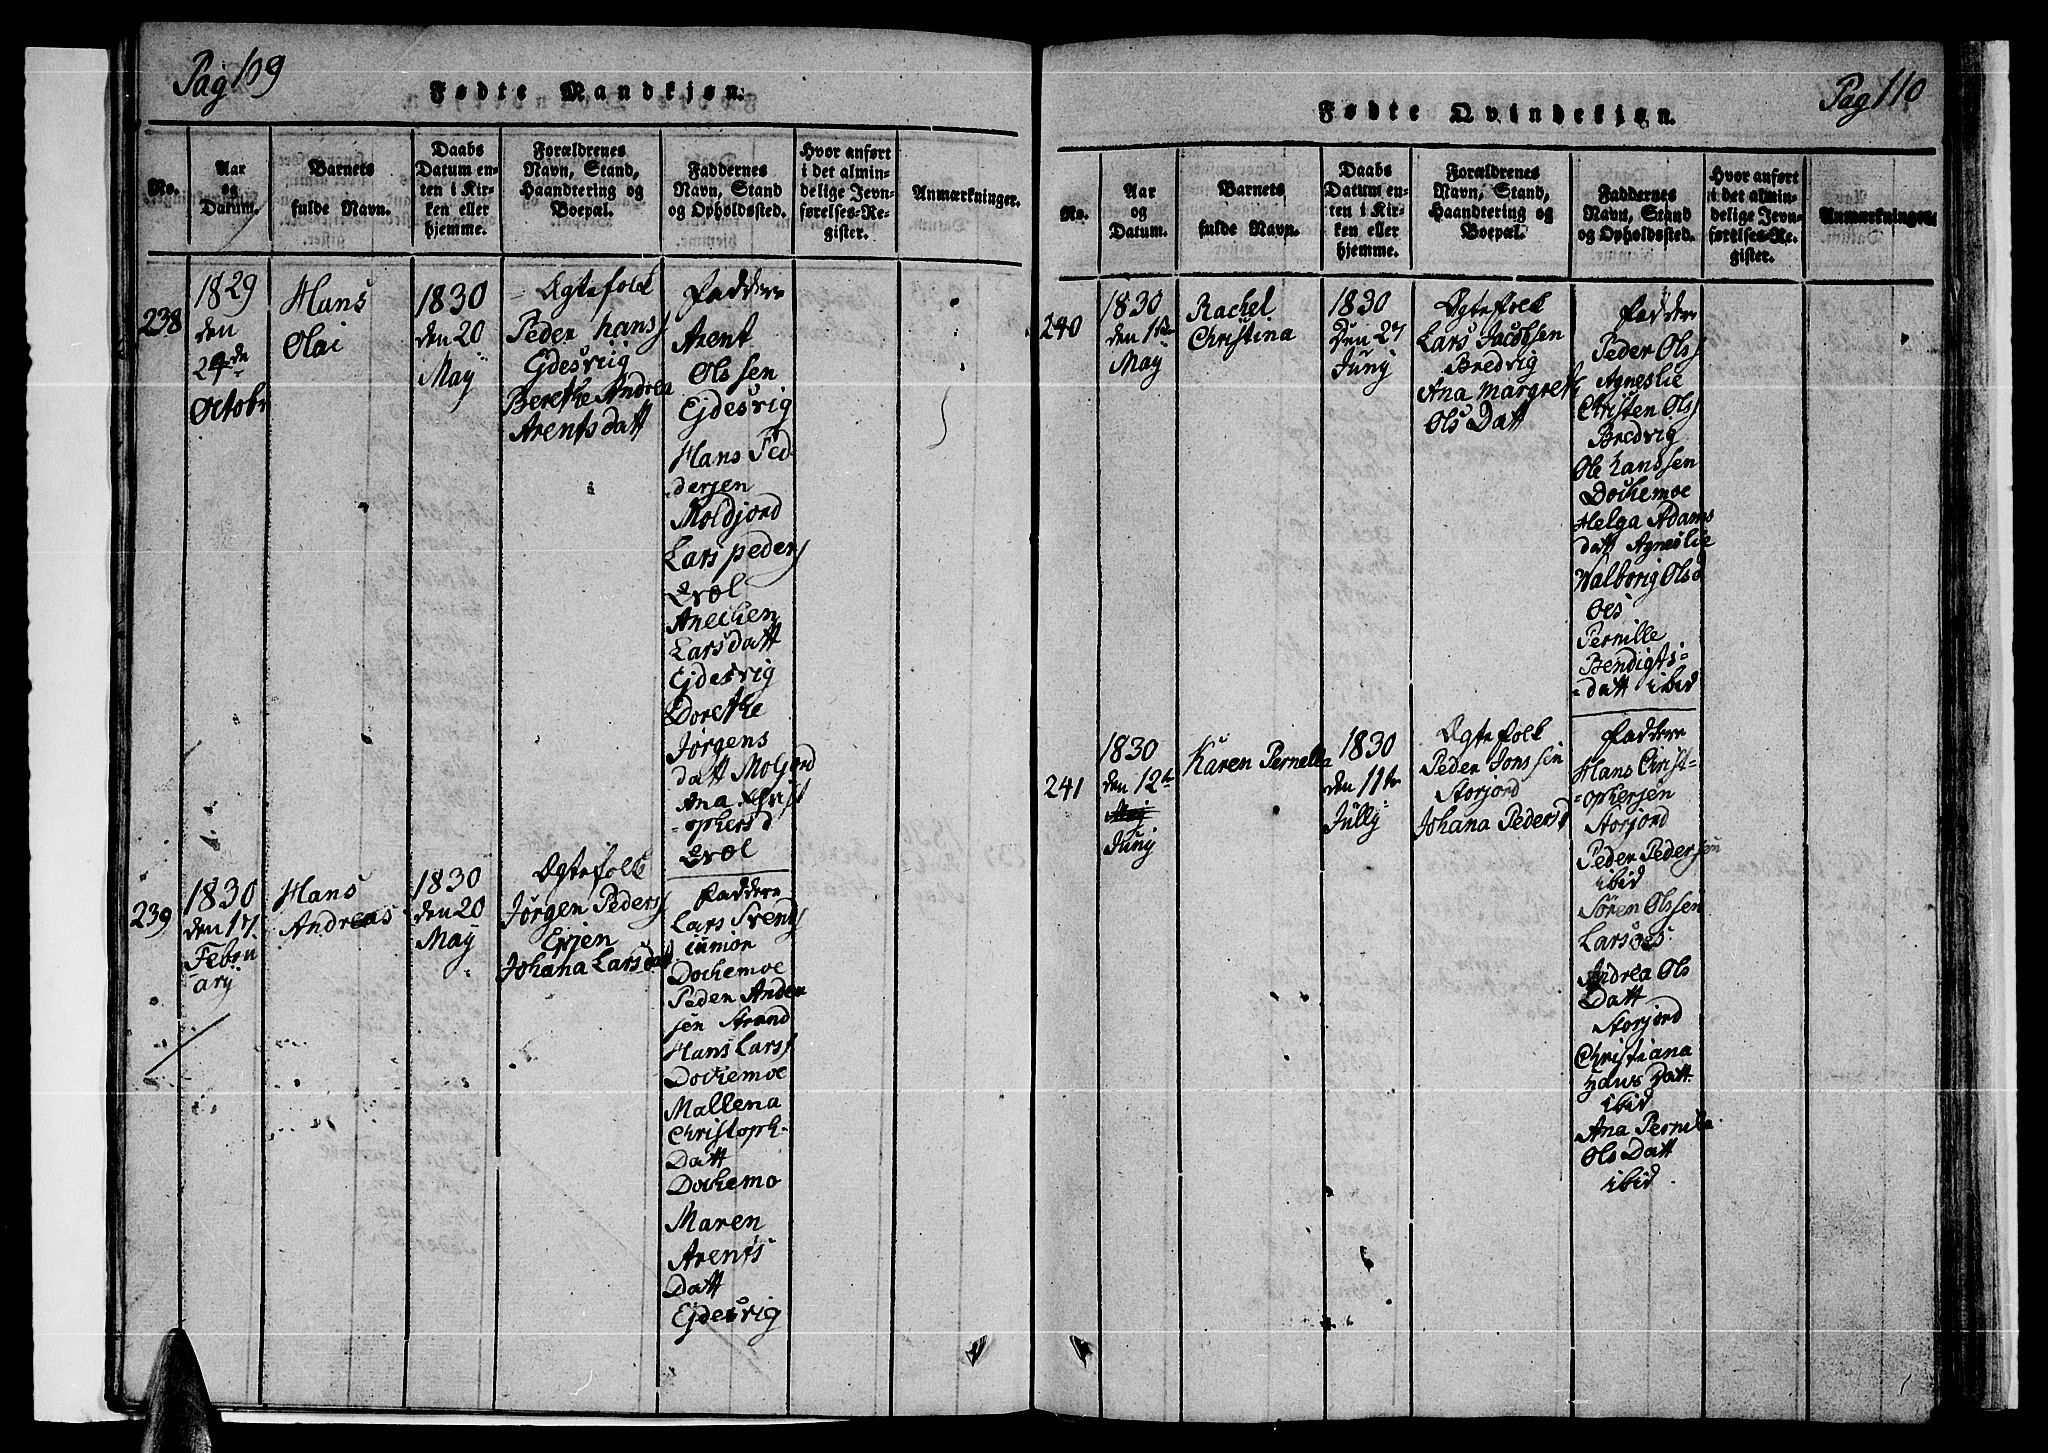 Pag 109
Fødte Mandkjøn.
No.
Aar
og
Datum.
Barnets
fulde Navn.
Daabs
Datum en-
ten i Kir-
ken eller
hjemme.
Forældrenes
Navn, Stand,
Haandtering og
Boepæl.
Faddernes
Navn, Stand
og Opholdssted.
Hvor anført
i det almin-
delige Jevn-
førelses-Re-
gister.
Anmærkninger.
238
1829
den
24de
Octobr
Hans
Olai
1830
den 20
May
Ægtefolk
Peder hanss
Ejdesviig
Berethe Andrea
Arentsdatt
Faddere
Arent
Olssen
Ejdesvig
Hans Ped
dersen
Moldjord
Lars peders
Evæl
Anechen
Larsdatt
Ejdesvig
Dorethe
Jørgens
datt Moljord
Ana Christ
=ophersd
Evæl
239
1830
den 17
Febru
ary
Hans
Andreas
1830
den 20
May
Ægtefolk
Jørgen Peders
Evjen
Johana Larsdatt
Faddere
Lars Svends
iunior
Dochemoe
Peder Ander
sen Strand
Hans Larss
Dochemoe
Mallena
Christoph-
Datt
Dochemo
Maren
Arents
Datt
Ejdesvig
Pag 110
Fødte Qvindekjøn.
No.
Aar
og
Datum.
Barnets
fulde Navn.
Daabs
Datum en-
ten i Kir-
ken eller
hjemme.
Forældrenes
Navn, Stand,
Haandtering og
Boepæl.
Faddernes
Navn, Stand
og Opholdssted.
Hvor anført
i det almin-
delige Jevn-
førelses-Re-
gister.
Anmærkninger.
240
1830
den 1ste
May
Rachel
Christina
1830
Den 27
Junj
Ægtefolk
Lars Jacobsen
Bredvig
Ana margreth
Ols Datt
Faddere
Peder Olss
Agneslie
Christen Olss
Bredvig
Ole hanssen
Dochemoe
Helga Adams
datt Agneslie
Walborig Olsd
Oes
Pernille
Bendigts=
=datt ibid
241
1830
den 12te
May
Junj
Karen Pernella
1830
den 11te
Jully
Ægtefolk
Peder Jonssen
Storjord
Johana Pedersd
Faddere
Hans Christ=
=ophersen
Storjord
Peder Pedersen
ibid
Søren Olssen
Larsoes
Andrea Ols
Datt
Storjord
Christiana
Hans Datt
ibid
Ana Pernila
Ols Datt
ibid